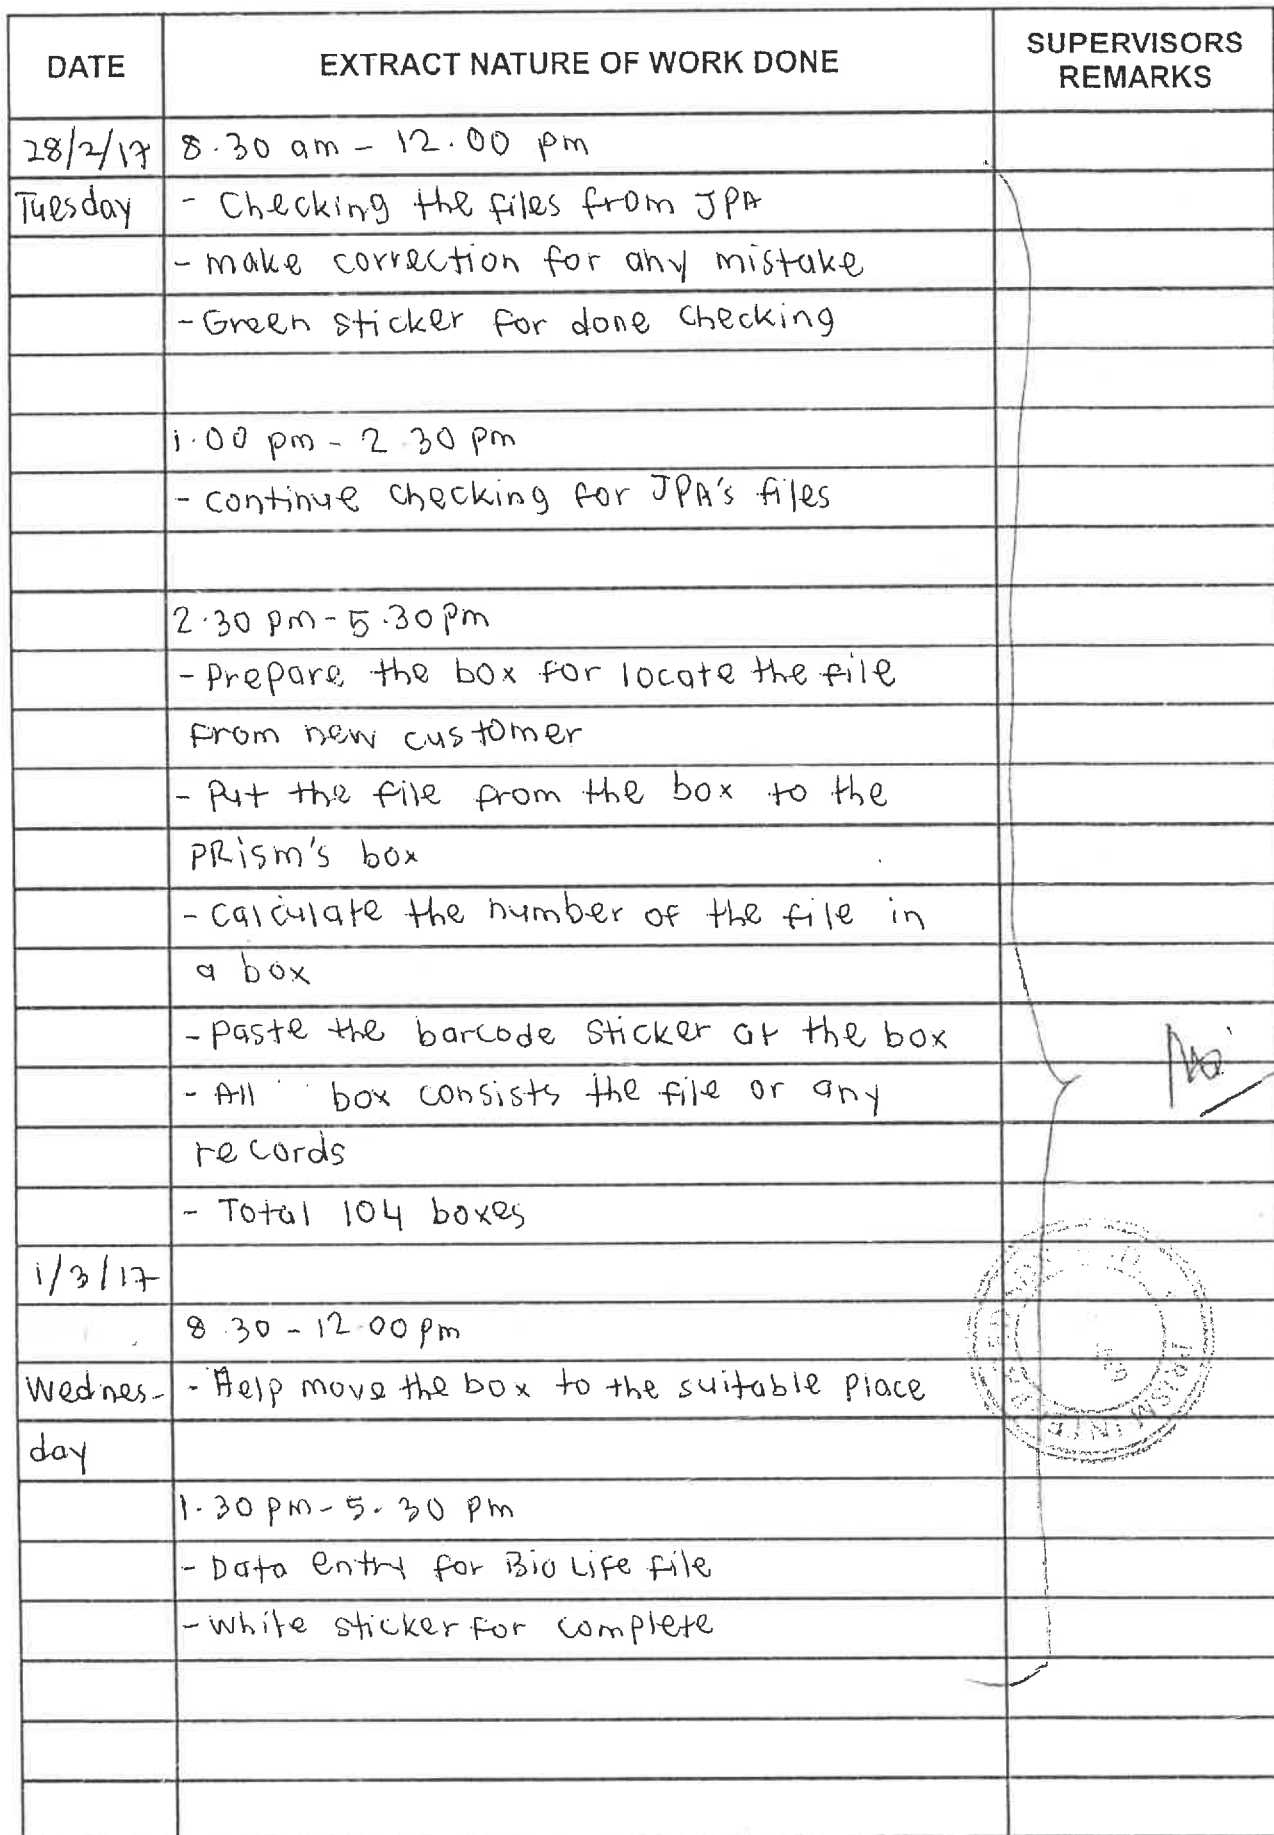 DATE EXTRACT NATURE OF WORK DONE SUPERVISORS REMARKS
28/2/17 8.30 am - 12.00 pm
Tuesday - Checking the files from JPA
- make correction for any mistake
- Green sticker for done checking
1.00 pm - 2.30 pm
- continue checking for JPA's files
2.30 pm - 5.30 pm
- Prepare the box for locate the file
from new customer
- Put the file from the box to the
PRism's box
- Calculate the number of the file in
a box
- paste the barcode sticker at the box
- All box consists the file or any
records
- Total 104 boxes
1/3/17
8.30 - 12.00 pm
Wednes- - Help move the box to the suitable place
day
1.30 pm - 5.30 pm
- Data entry for Bio Life file
- white sticker for complete